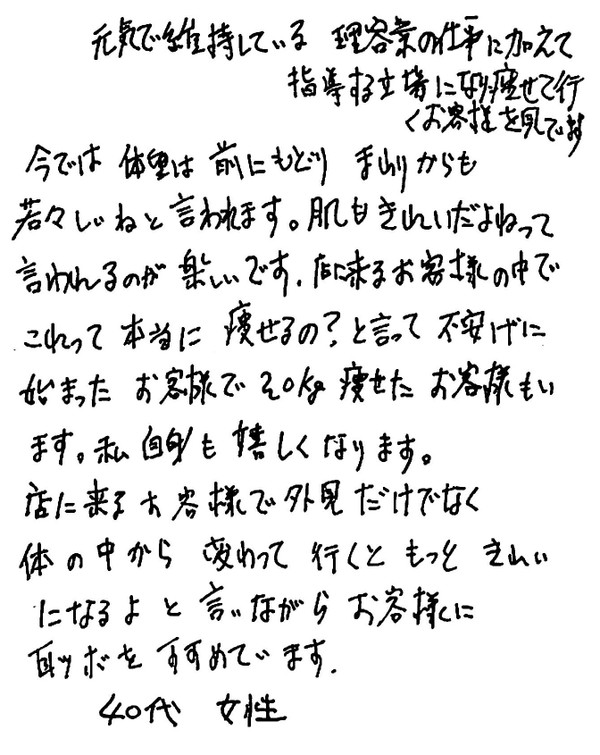 元気で維持している 理容業の仕事に加えて
指導する立場になり痩せて行
くお客様を見てます
今では 体重は 前にもどり まわりからも
若々しいねと 言われます。肌もきれいだよねって
言われるのが 楽しいです. 店に来るお客様の中で
これって 本当に 痩せるの?と言って 不安げに
始まった お客様で 20kg 痩せた お客様もい
ます。私自身も 嬉しくなります。
店に来るお客様で 外見だけでなく
体の中から 変わって 行くと もっと きれい
になるよ と 言いながら お客様に
耳ツボを すすめています.
40代 女性